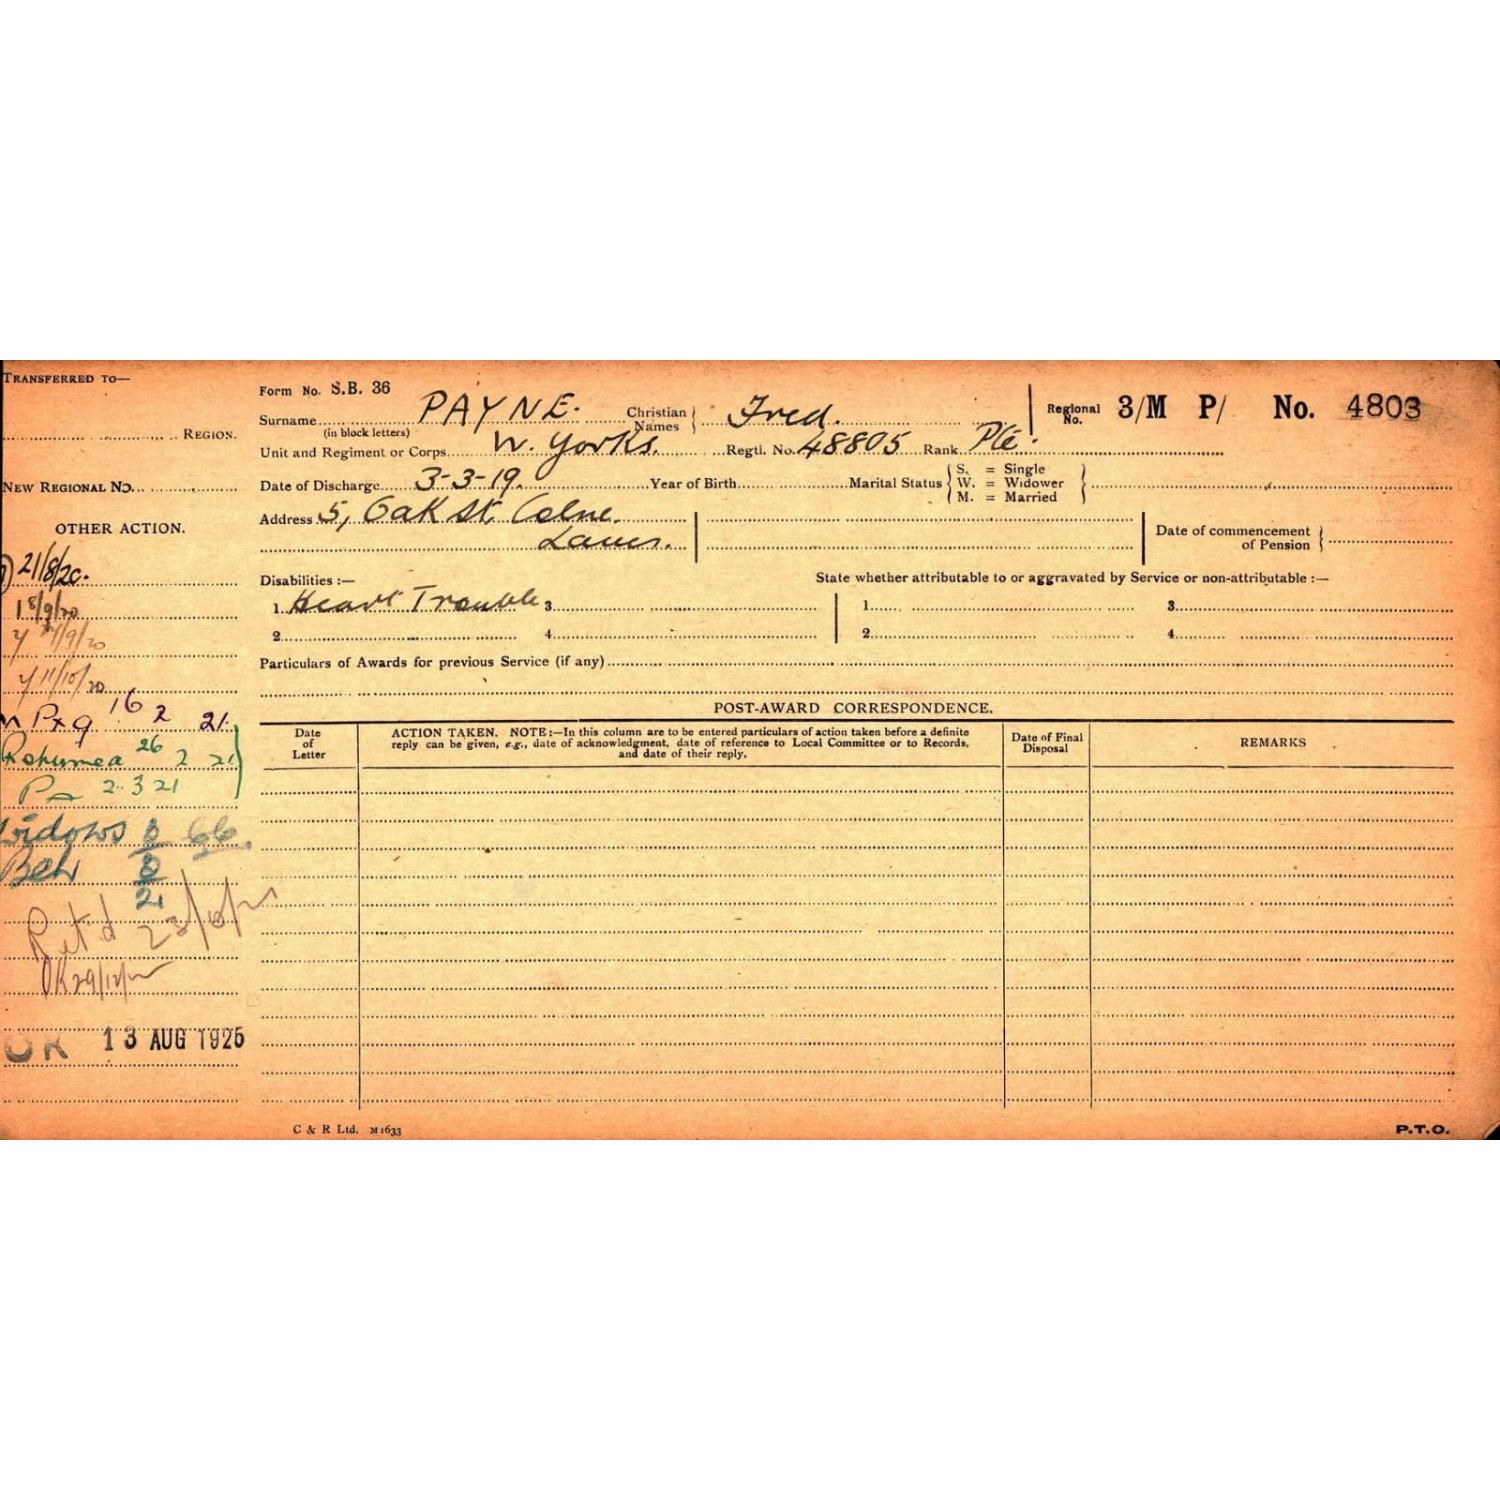 TRANSFERRED TO—
REGION.
NEW REGIONAL NO.
OTHER ACTION.
21/8/20.
18/9/20
11/10/20
16 2 21.
26 2 21
PA 2.3.21
Widows 66
Ret'd 23/10/
OK 29/12/
OK 13 AUG 1925
Form No. S.B. 36
Surname PAYNE. Christian Names Fred. Regional No. 3/M P/ No. 4803
(in block letters)
Unit and Regiment or Corps W. Yorks. Regtl. No. 48805 Rank Pte.
Date of Discharge 3-3-19. Year of Birth Marital Status S. = Single W. = Widower M. = Married
Address 5, Oak St. Colne.
Lancs.
Date of commencement of Pension
Disabilities :— State whether attributable to or aggravated by Service or non-attributable :—
1. Heart Trouble 3. 1. 3.
2. 4. 2. 4.
Particulars of Awards for previous Service (if any)
POST-AWARD CORRESPONDENCE.
Date of Letter
ACTION TAKEN. NOTE:—In this column are to be entered particulars of action taken before a definite
reply can be given, e.g., date of acknowledgment, date of reference to Local Committee or to Records,
and date of their reply.
Date of Final Disposal
REMARKS
C & R Ltd. M1633
P.T.O.